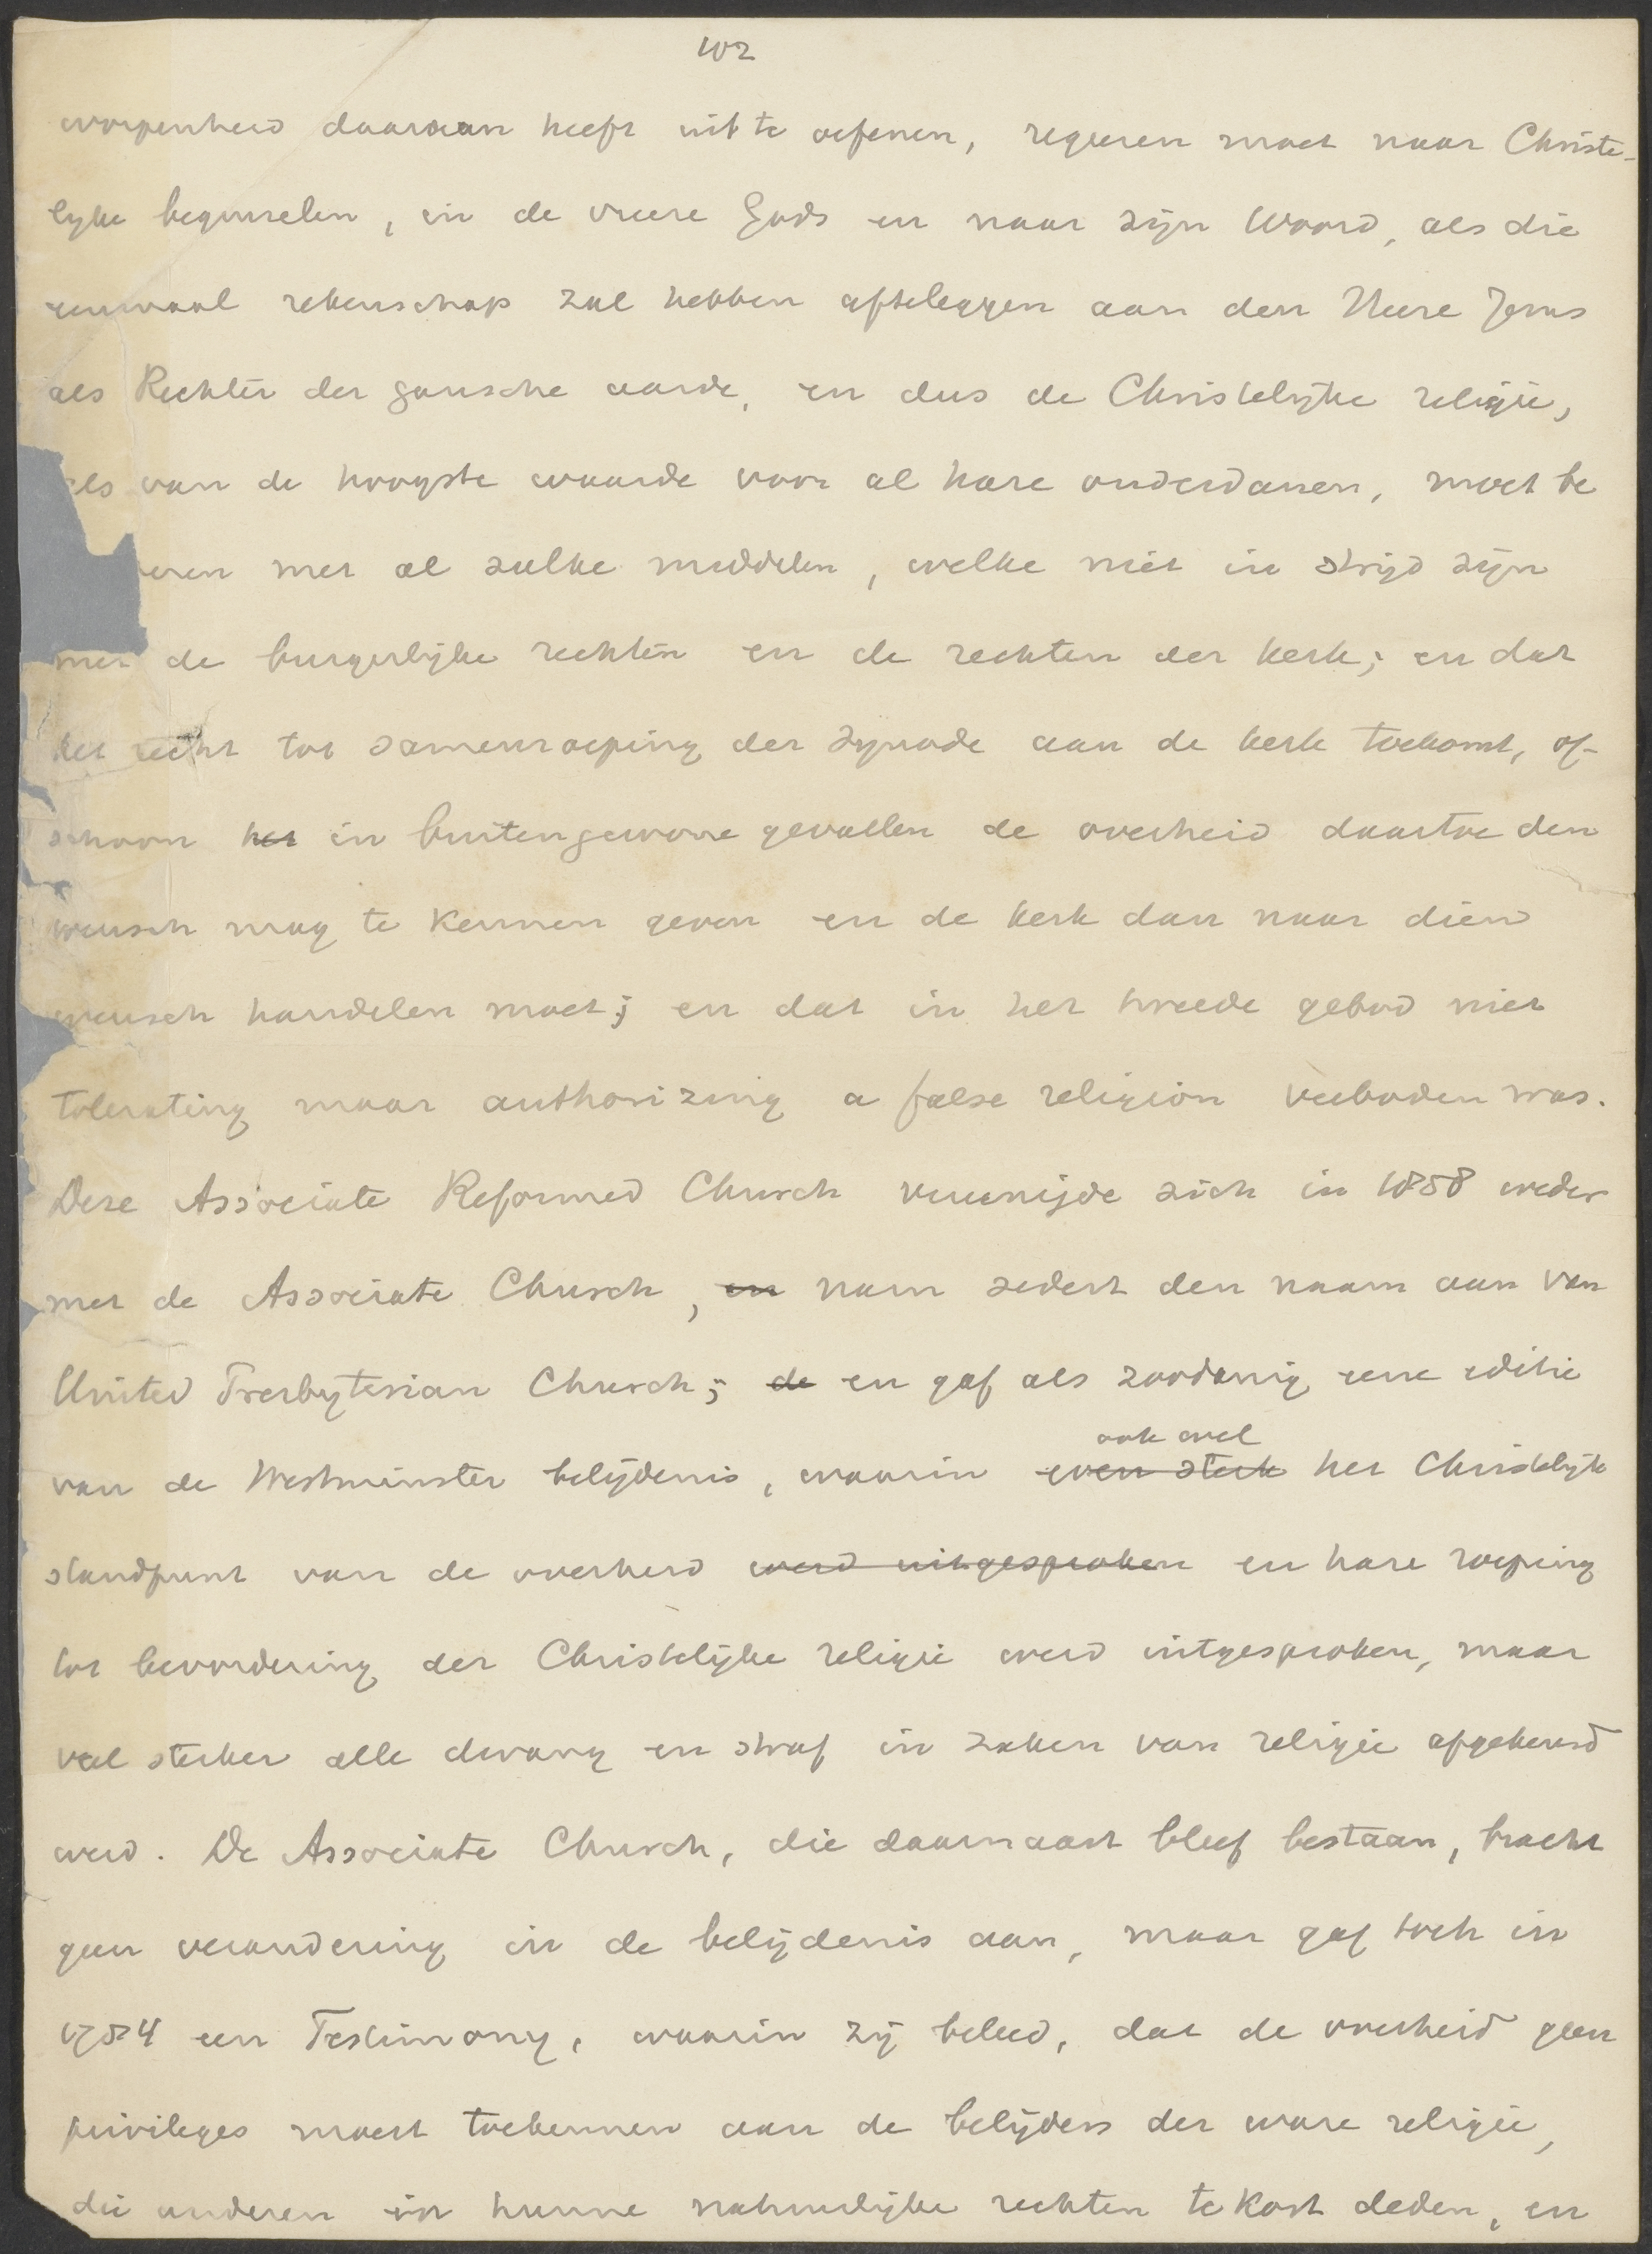 102
worpenheid daaraan heeft uit te oefenen, regeeren moet naar Christe-
lijke beginselen, in de vreeze Gods en naar zijn Woord, als die
eenmaal rekenschap zal hebben afteleggen aan den Heere Jezus
als Rechter der gansche aarde, en dus de Christelijke religie,
als van de hoogste waarde voor al hare onderdanen, moet be
eren met al zulke middelen, welke niet in strijd zijn
met de burgerlijke rechten en de rechten der kerk; en dat
het recht tot samenroeping der synode aan de kerk toekomt, of-
schoon het in buitengewone gevallen de overheid daartoe den
wensch mag te kennen geven en de kerk dan naar dien
wensch handelen moet; en dat in het tweede gebod niet
tolerating maar authorizing a false religion verboden was.
Deze Associate Reformed Church vereenigde zich in 1858 weder
met de Associate Church, en nam sedert den naam aan van
United Presbyterian Church; de en gaf als zoodanig eene editie
van de Westminster belijdenis, waarin even sterk ook wel het Christelijk
standpunt van de overheid werd uitgesproken en hare roeping
tot bevordering der Christelijke religie werd uitgesproken, maar
veel sterker alle dwang en straf in zaken van religie afgekeurd
werd. De Associate Church, die daarnaast bleef bestaan, bracht
geen verandering in de belijdenis aan, maar gaf toch in
1784 een Testimony, waarin zij beleed, dat de overheid geen
privileges moest toekennen aan de belijders der ware religie,
die anderen in hunne natuurlijke rechten te kort deden, en